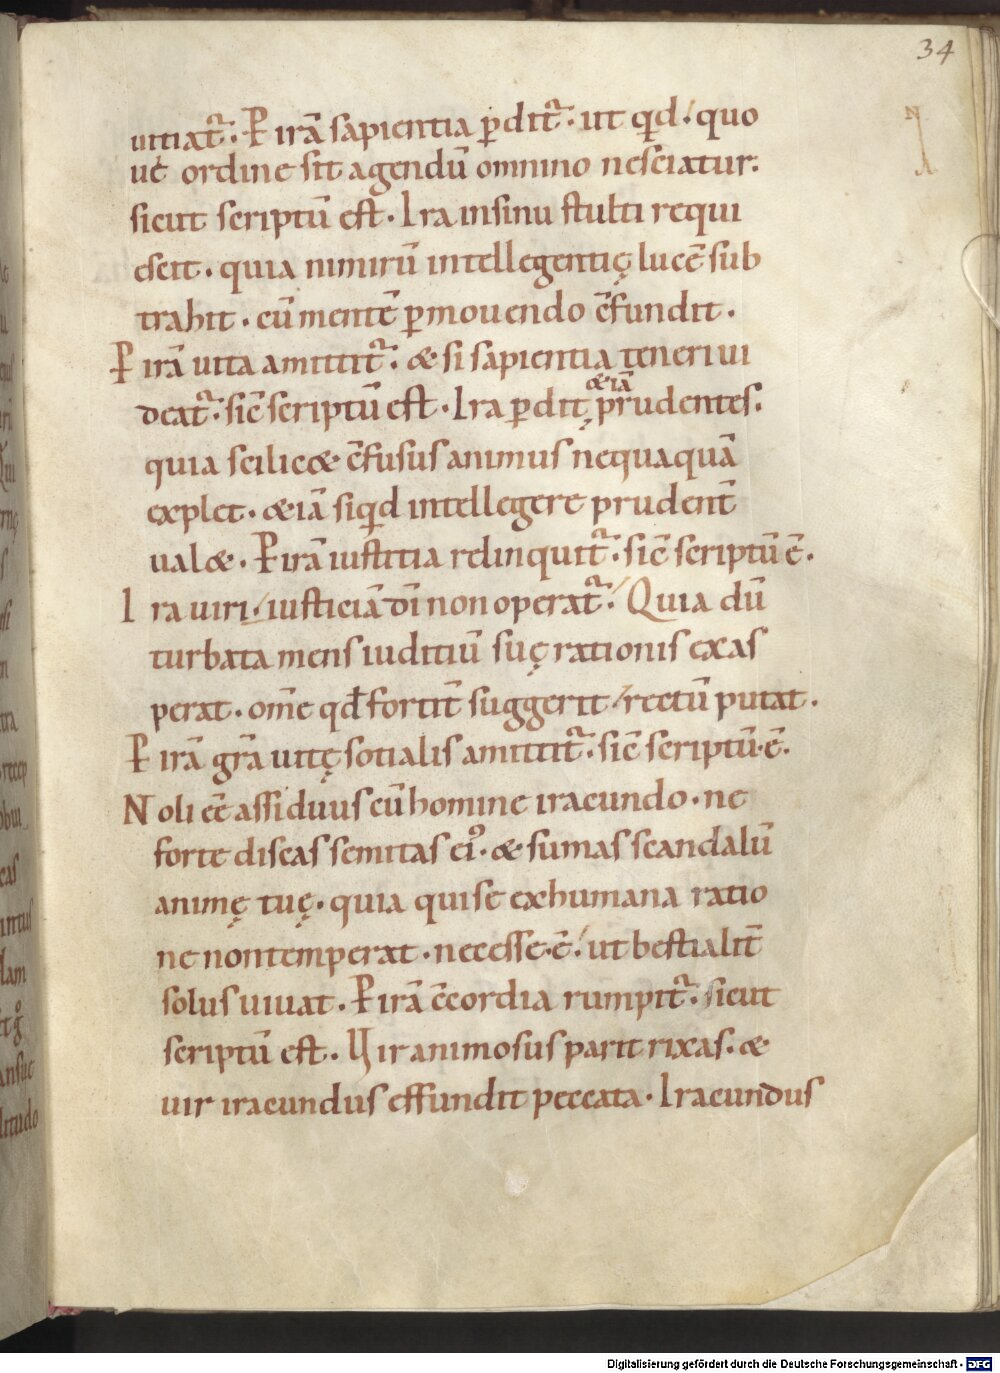 34
uitiat᷑. P irā sapientia ꝑdit᷑. ut qd quo
ue ordine sit agendū omnino nesciatur.
sicut scriptū est. Ira in sinu stulti requi
escit. quia nimirū intellegentię lucē sub
trahit. cū mentē ꝑmouendo c̄fundit.
P irā uita amittit᷑. & si sapientia teneri ui
deat᷑. sic̄ scriptū est. Ira ꝑdit &iā prudentes.
quia scilic& c̄fusus animus nequaquā
explet. &iā siqd intellegere prudent̄
ual&. P irā iustitia relinquit᷑. sic̄ scriptū ē.
I ra uiri iusticiā dī non operat᷑. Quia dū
turbata mens iuditiū suę rationis exas
perat. om̄e qd fortit̄ suggerit rectū putat.
P irā gr̄a uitę sotialis amittit᷑. sic̄ scriptū ē.
N oli eē assiduus cū homine iracundo. ne
forte discas semitas ei᷒. & sumas scandalū
animę tuę. quia qui se ex humana ratio
ne non temperat. necesse ē. ut bestialit̄
solus uiuat. P irā c̄cordia rumpit᷑. sicut
scriptū est. Uir animosus parit rixas. &
uir iracundus effundit peccata. Iracundus
Digitalisierung gefördert durch die Deutsche Forschungsgemeinschaft - DFG